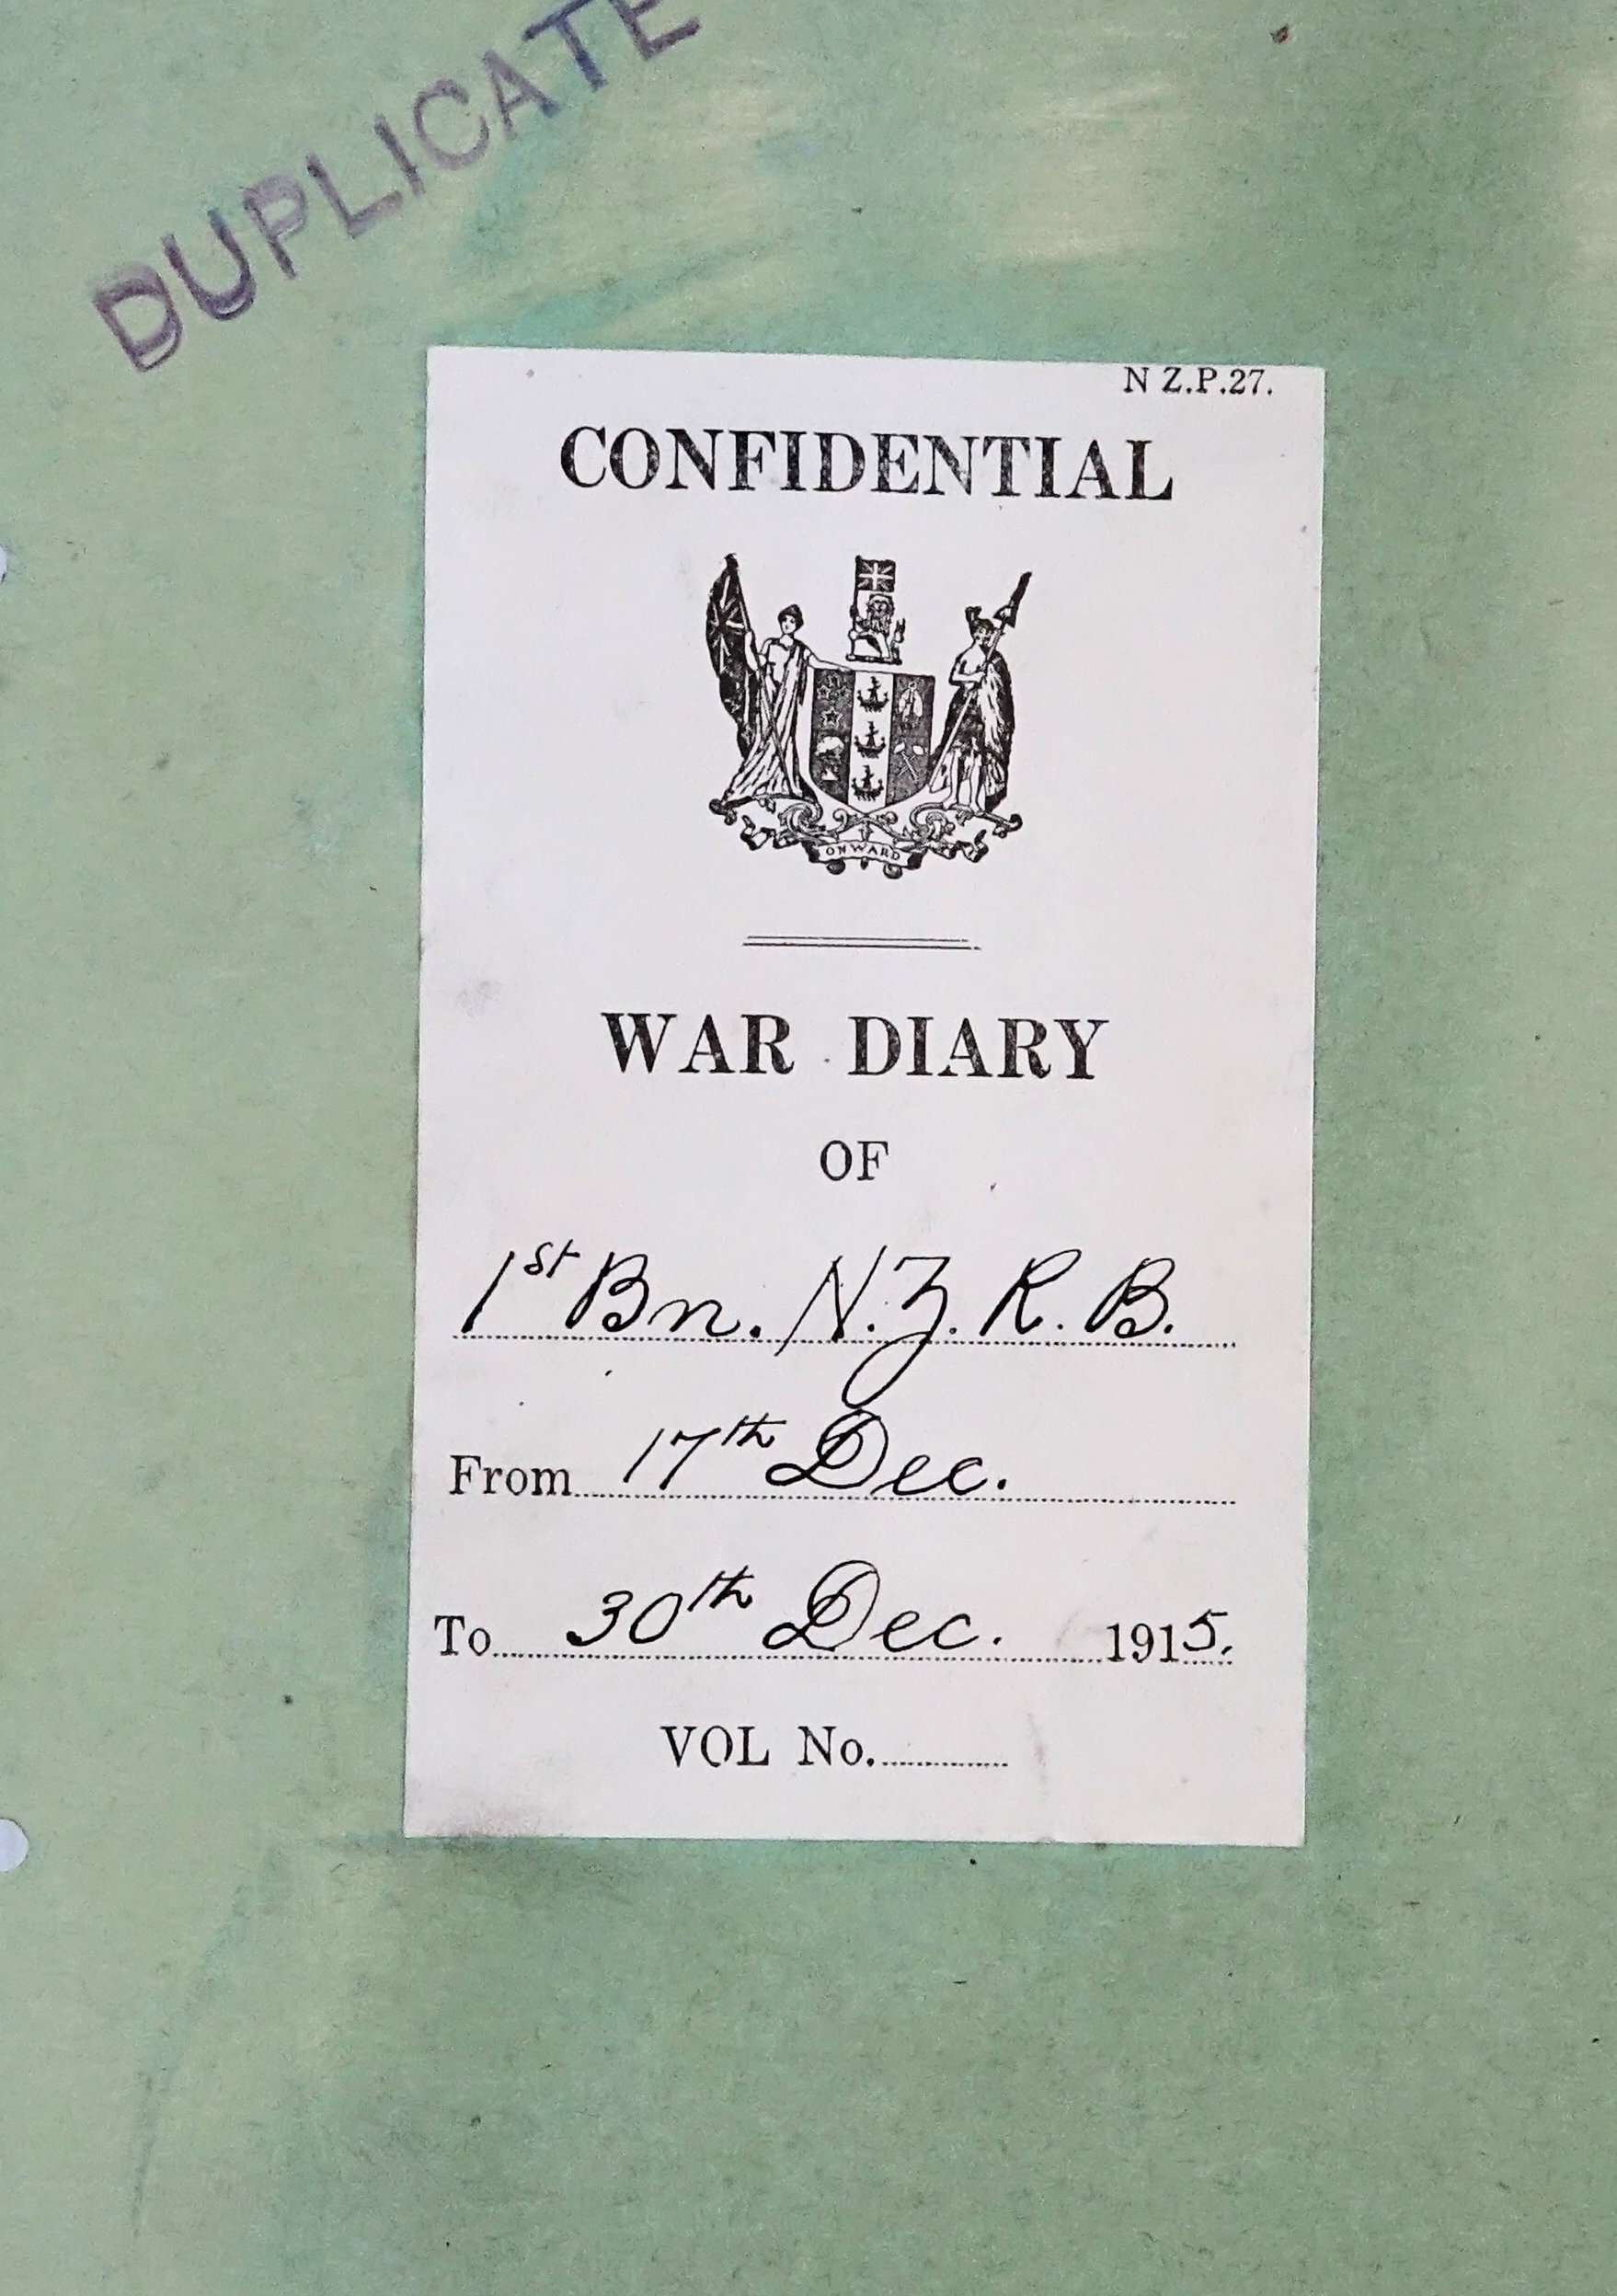 DUPLICATE
N Z.P.27.
CONFIDENTIAL
ONWARD
WAR DIARY
OF
1st Bn. N.Z. R. B.
From 17th Dec.
To 30th Dec. 1915.
VOL No.